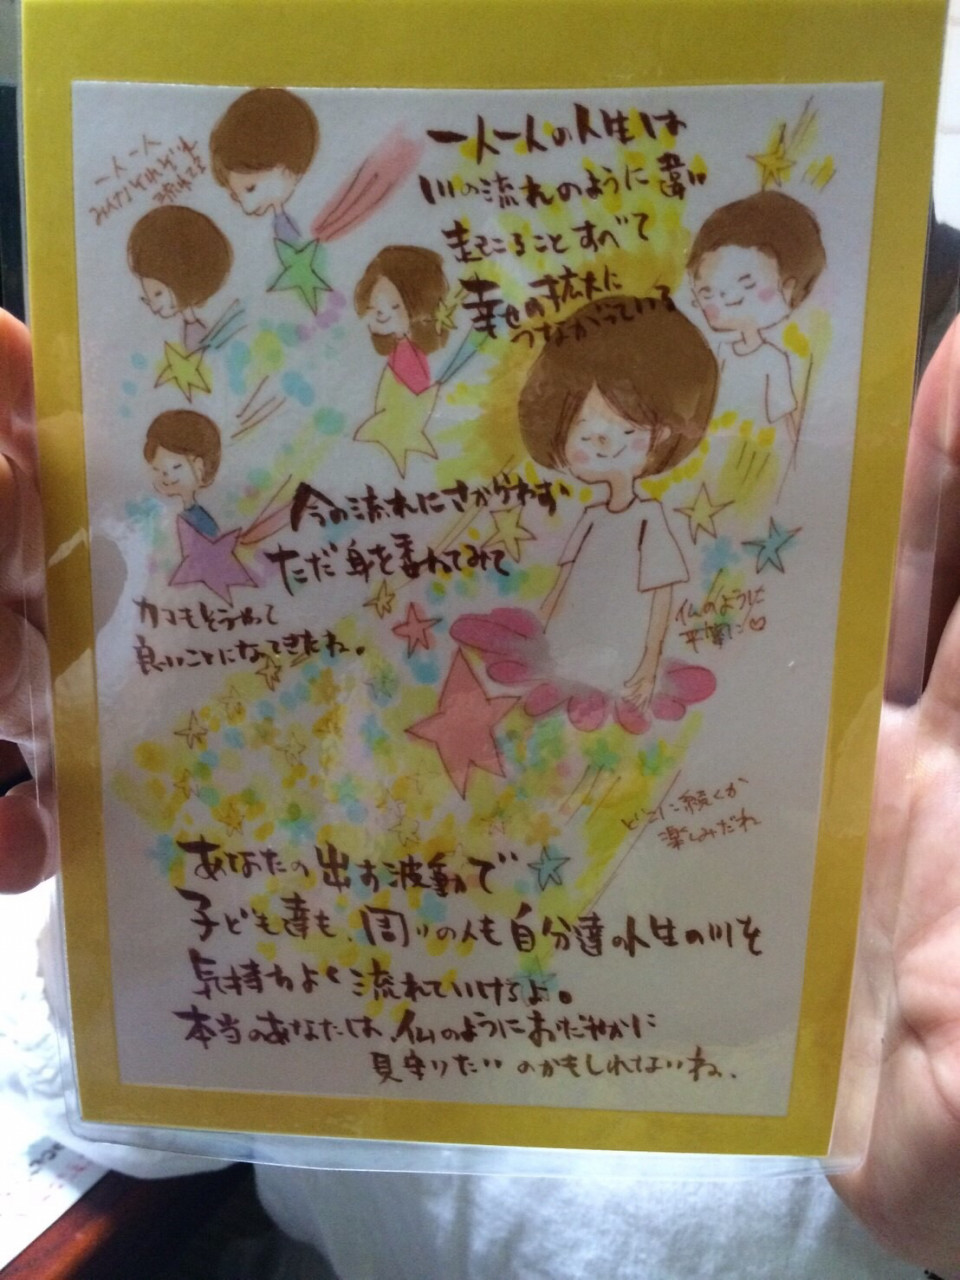 一人一人の人生は
川の流れのように違い
起こることすべて
幸せの拡大に
つながっている
一人一人
みんなそれぞれ
今の流れにさからわず
ただ身を委ねてみて
カコもそうやって
良いことになってきたね。
仏のように
平穏に♡
どこに続くか
楽しみだね
あなたの出す波動で
子ども達も、周りの人も自分達の人生の川を
気持ちよく流れていけるよ。
本当のあなたは、仏のようにおだやかに
見守りたいのかもしれないね、